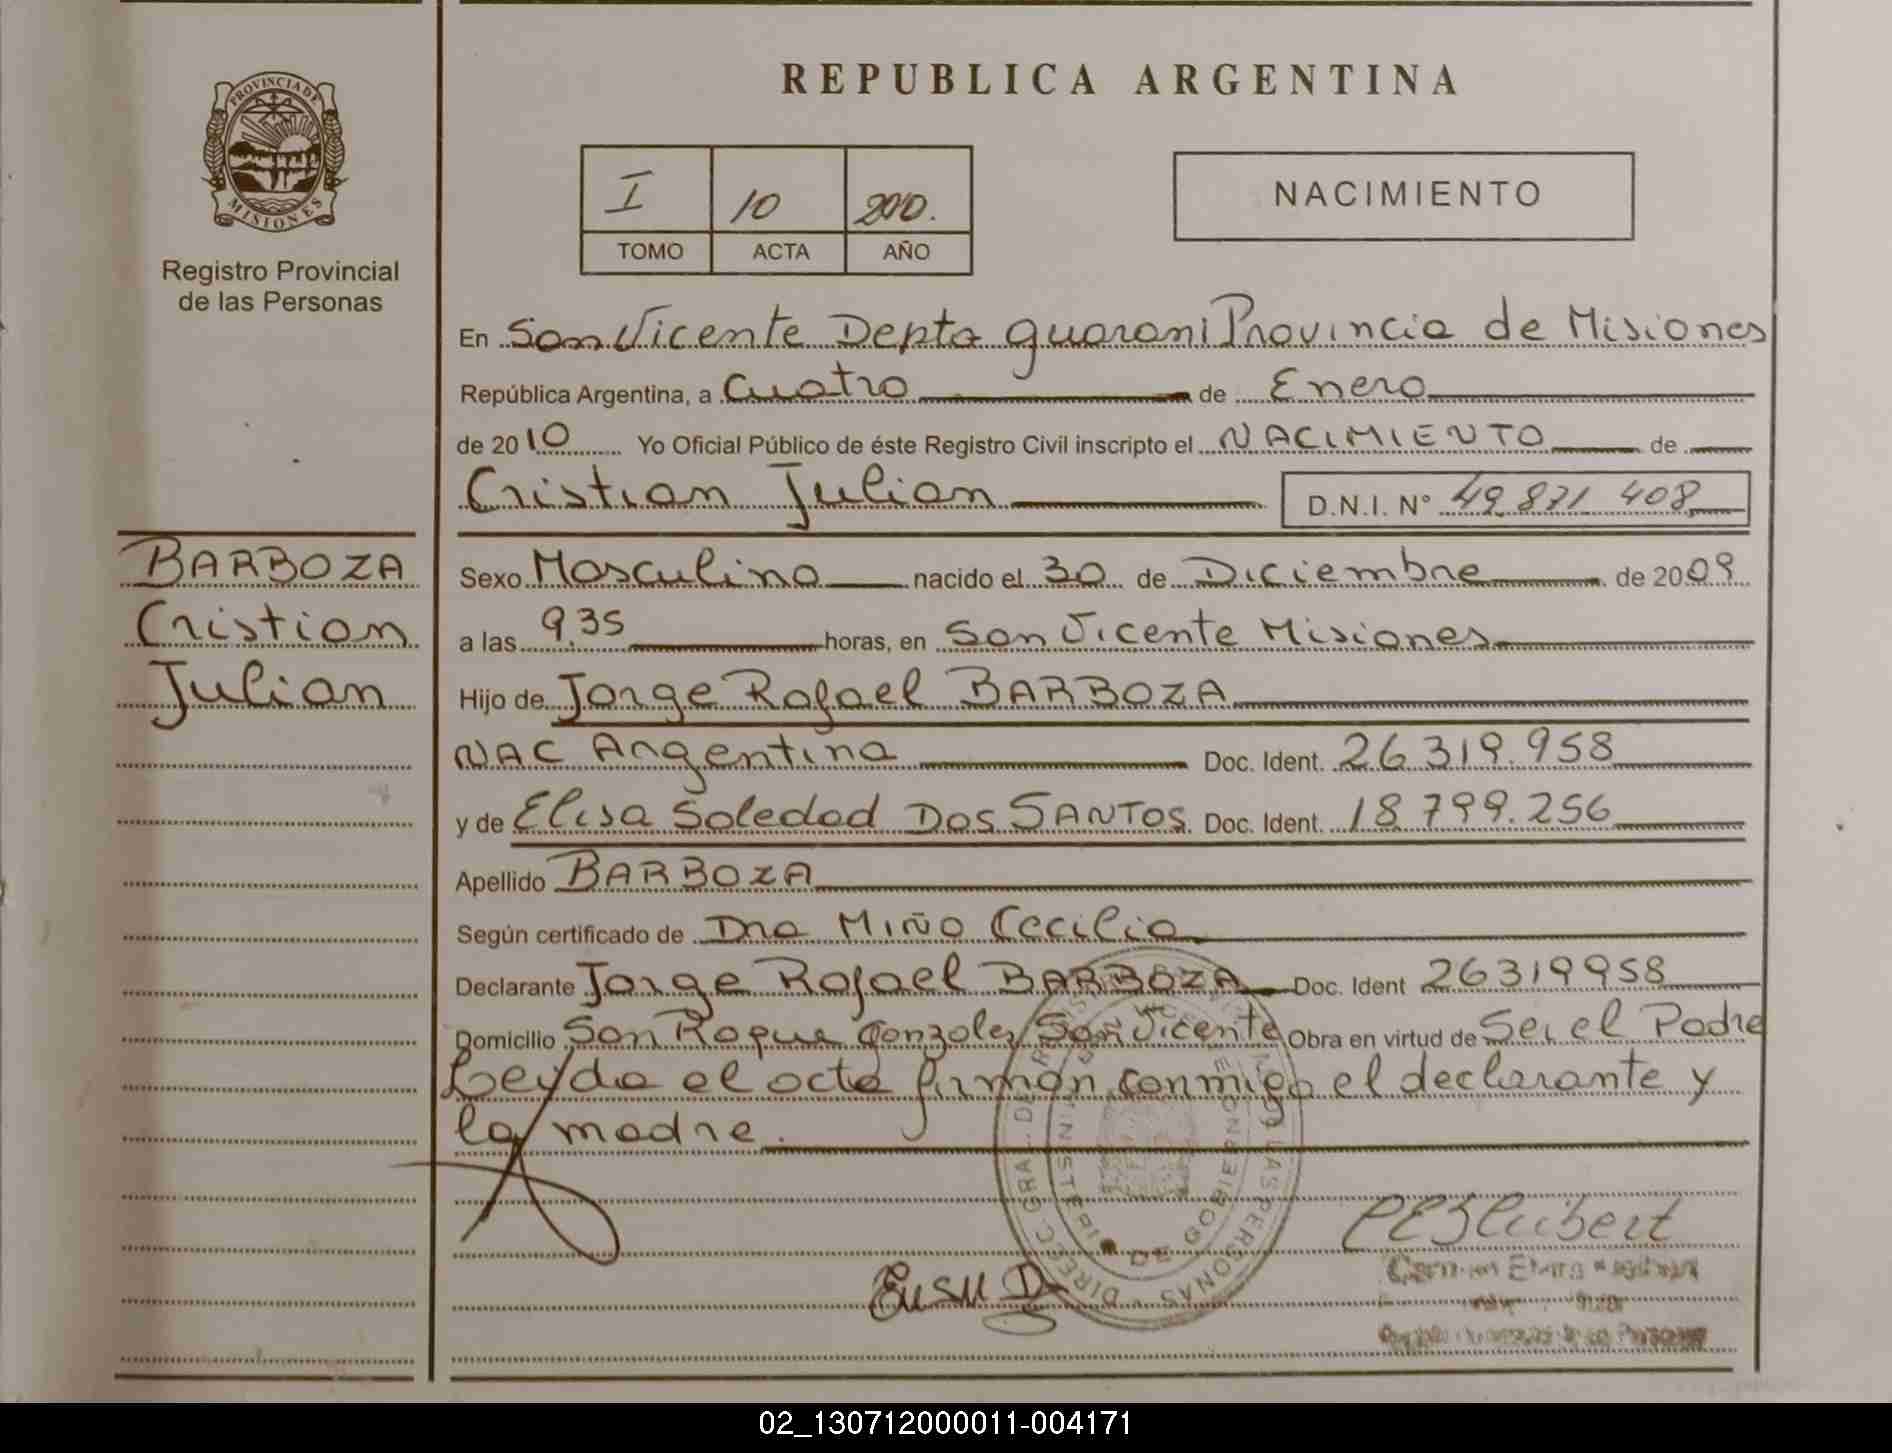 PROVINCIA DE
MISIONES
Registro Provincial
de las Personas
BARBOZA
Cristian
Julian
REPUBLICA ARGENTINA
I 10
TOMO ACTA AÑO
NACIMIENTO
En San Vicente Depto guarani Provincia de Misiones
República Argentina, a Cuatro de Enero
de 2010 Yo Oficial Público de éste Registro Civil inscripto el NACIMIENTO de
Cristian Julian D.N.I. N° 49.871 408
Sexo Masculino nacido el 30 de Diciembre de 2009
a las 9.35 horas, en San Vicente Misiones
Hijo de Jorge Rafael BARBOZA
NAC Argentina Doc. Ident. 26.319.958
y de Elisa Soledad DOS SANTOS Doc. Ident. 18.799.256
Apellido BARBOZA
Según certificado de Dra Miño Cecilia
Declarante Jorge Rafael BARBOZA Doc. Ident 26319958
Domicilio San Roque Gonzalez San Vicente Obra en virtud de Ser el Padre
Leyda el acta firman conmigo el declarante y
la madre.
DE GOBIERNO
02_130712000011-004171